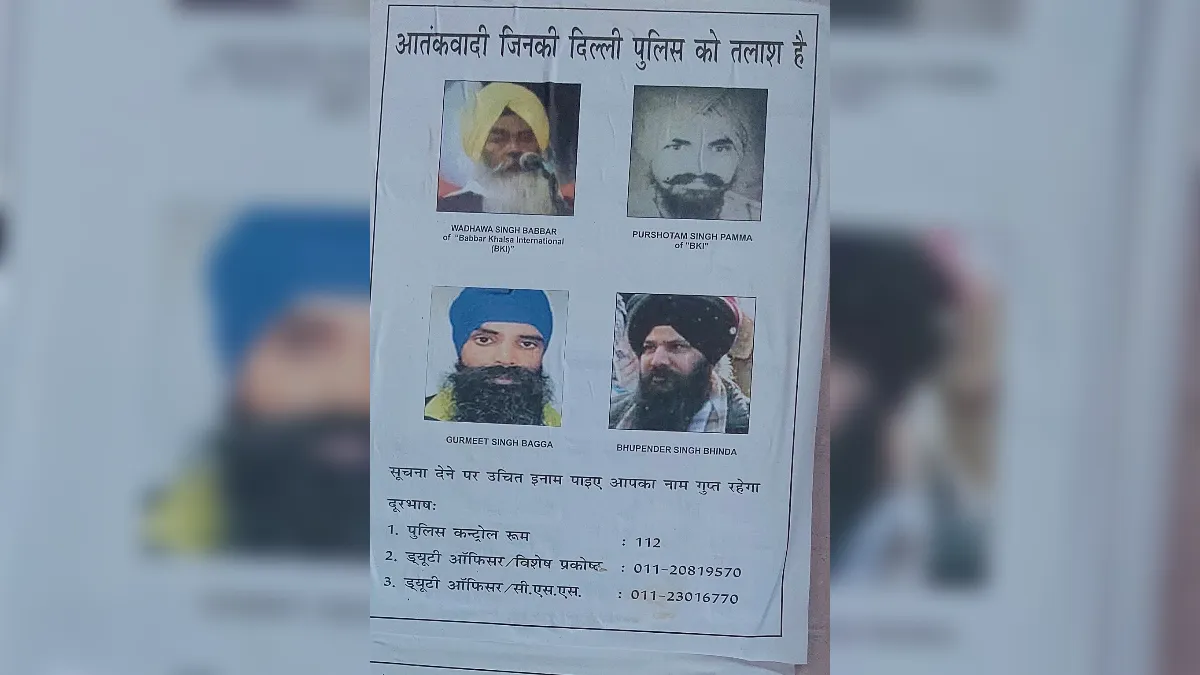 आतंकवादी जिनकी दिल्ली पुलिस को तलाश है
WADHAWA SINGH BABBAR
of "Babbar Khalsa International
(BKI)"
PURSHOTAM SINGH PAMMA
of "BKI"
GURMEET SINGH BAGGA
BHUPENDER SINGH BHINDA
सूचना देने पर उचित इनाम पाइए आपका नाम गुप्त रहेगा
दूरभाष:
1. पुलिस कन्ट्रोल रूम : 112
2. ड्यूटी ऑफिसर/विशेष प्रकोष्ट : 011-20819570
3. ड्यूटी ऑफिसर/सी.एस.एस. : 011-23016770